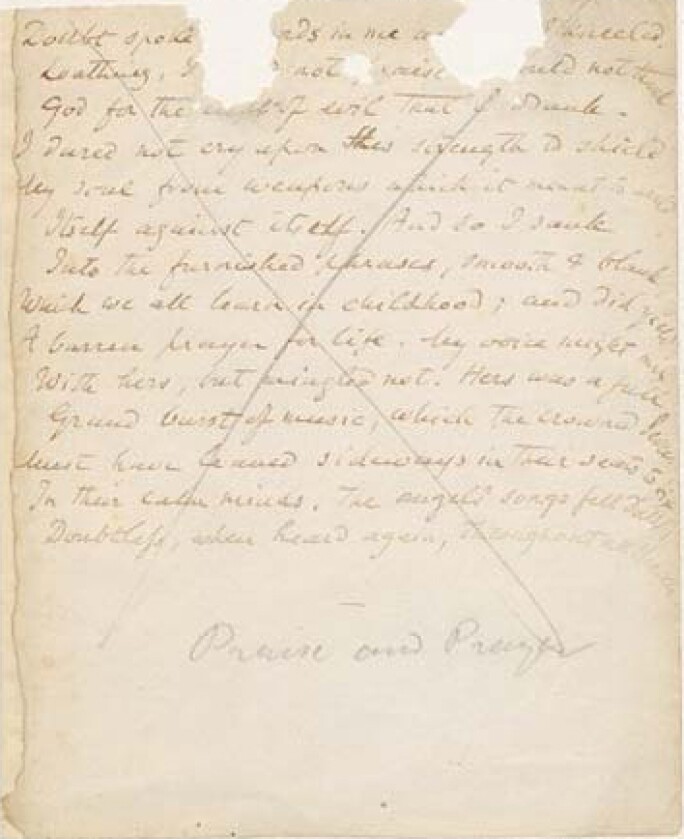 Doubt spoke ds in me a kneeled.
Loathing, I not praise uld not thank
God for the cup of evil that I drank.
I dared not cry upon His strength to shield
My soul from weapons which it meant to wield
Itself against itself. And so I sank
Into the furnished phrases, smooth & blank
Which we all learn in childhood; and did yield
A barren prayer for life. My voice might mix
With hers, but mingled not. Hers was a full
Grand burst of music, which the crowned
Must have leaned sideways in their seats to fix
In their calm minds. The angels' songs fell dull
Doubtless, when heard again, throughout all Heaven
Praise and Prayer